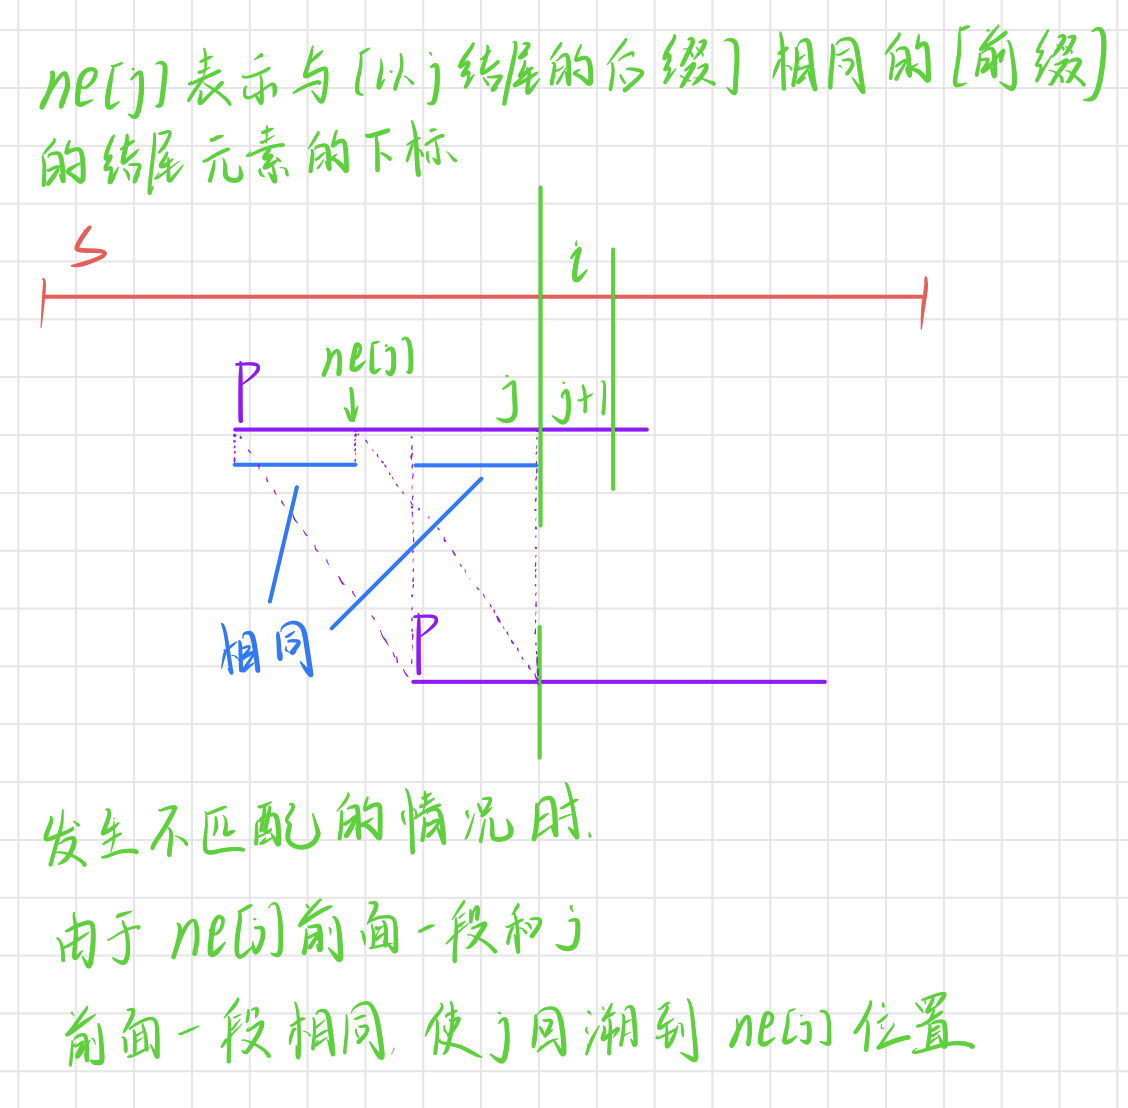 ne[j]表示与[以j结尾的后缀]相同的[前缀]
的结尾元素的下标
S
i
P
ne[j]
j
j+1
相同
P
发生不匹配的情况时.
由于ne[j]前面一段和j
前面一段相同,使j回溯到ne[j]位置